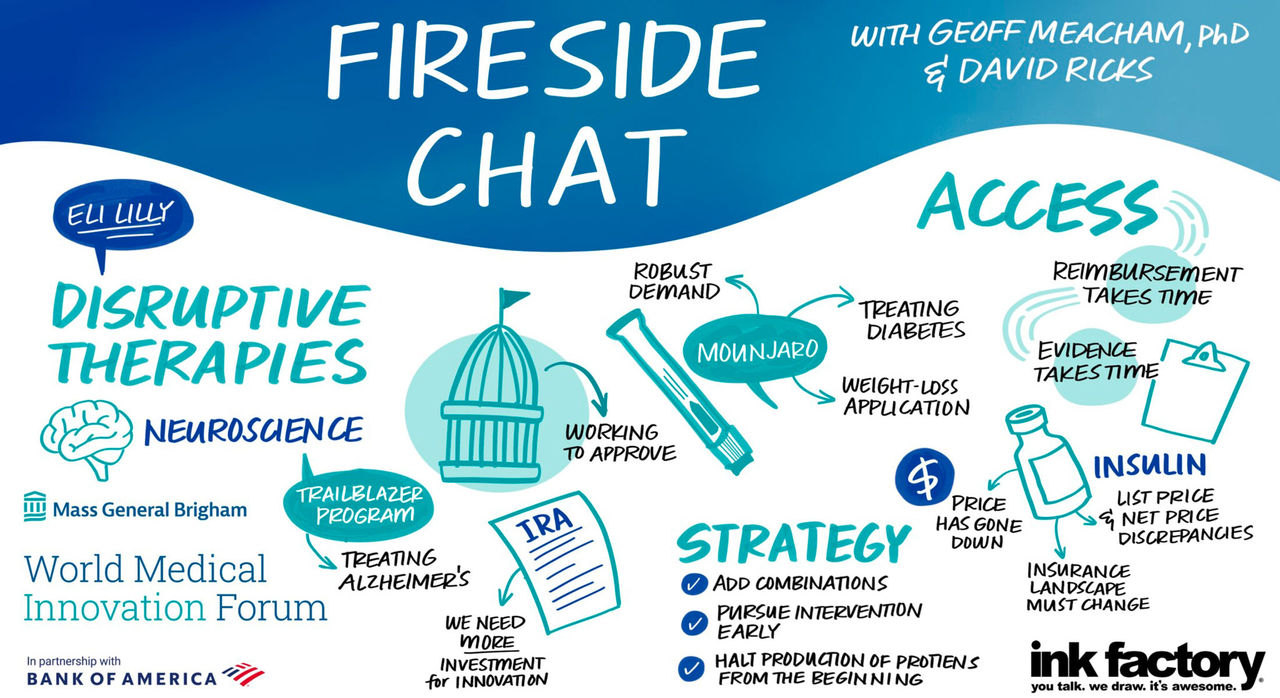 FIRESIDE
CHAT
WITH GEOFF MEACHAM, PhD
& DAVID RICKS
ELI LILLY
DISRUPTIVE
THERAPIES
NEUROSCIENCE
TRAILBLAZER
PROGRAM
TREATING
ALZHEIMER'S
WORKING
TO APPROVE
IRA
WE NEED
MORE
INVESTMENT
for INNOVATION
ROBUST
DEMAND
MOUNJARO
TREATING
DIABETES
WEIGHT-LOSS
APPLICATION
STRATEGY
ADD COMBINATIONS
PURSUE INTERVENTION
EARLY
HALT PRODUCTION OF PROTIENS
FROM THE BEGINNING
ACCESS
REIMBURSEMENT
TAKES TIME
EVIDENCE
TAKES TIME
INSULIN
$
PRICE
HAS GONE
DOWN
LIST PRICE
& NET PRICE
DISCREPANCIES
INSURANCE
LANDSCAPE
MUST CHANGE
Mass General Brigham
World Medical
Innovation Forum
In partnership with
BANK OF AMERICA
ink factory®
you talk. we draw. it's awesome.